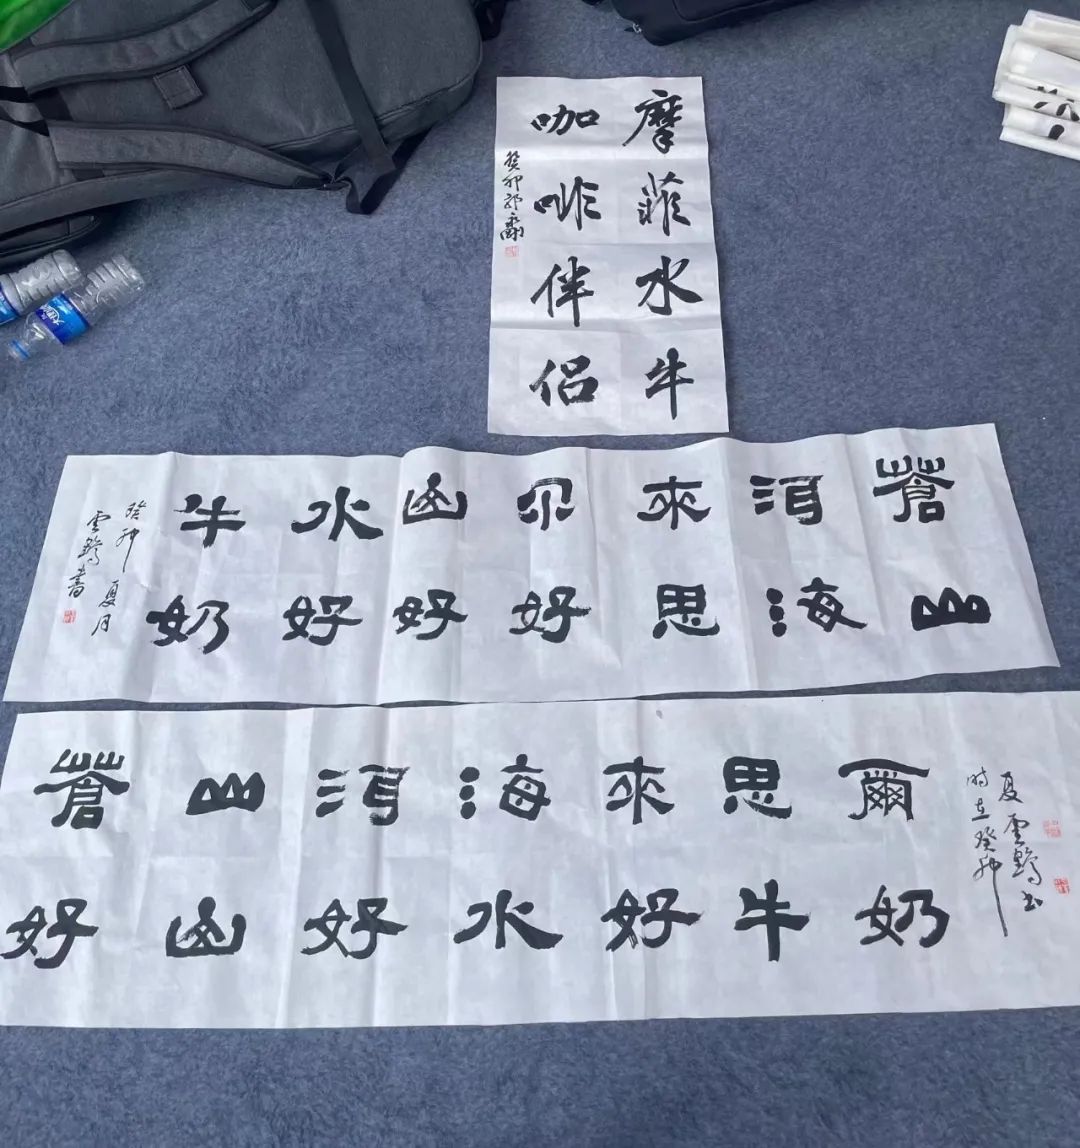 摩菲水牛
咖啡伴侣
癸卯
蒼山
洱海
來思
尔好
山好
水好
牛奶
癸卯夏月
雲鶴書
蒼山洱海來思爾
好山好水好牛奶
时在癸卯
夏雲鶴书